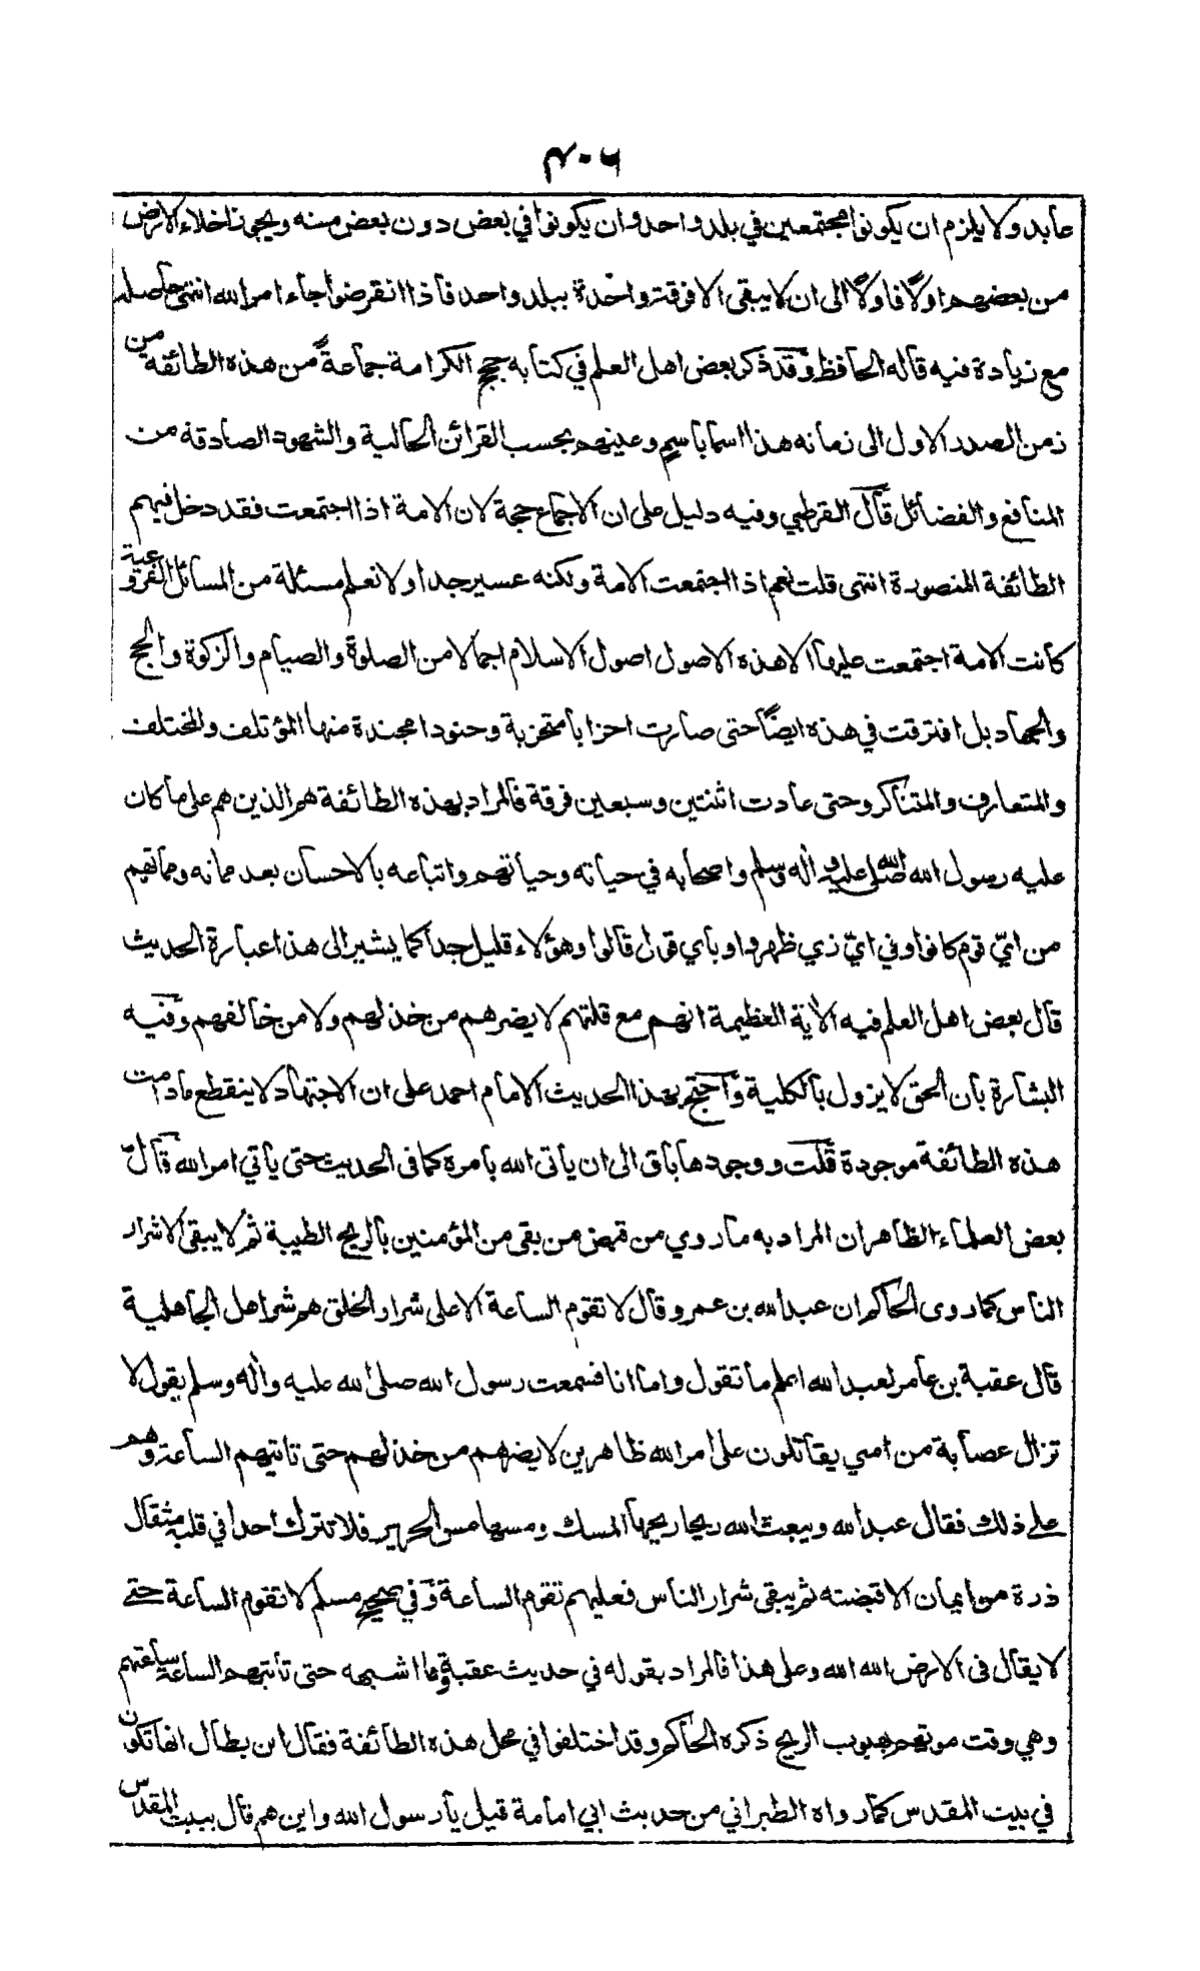 ٤٠٦
عابد ولا يلزم ان يكونوا مجتمعين في بلد واحد وان يكونوا في بعض دون بعض منه ويجوز اخلاء الارض
من بعضهم اولًا فاولًا الى ان لا يبقى الا فرقة واحدة ببلد واحد فاذا انقرضوا جاء امر الله انتهى حاصله
مع زيادة فيه قاله الحافظ وقد ذكر بعض اهل العلم في كتابه حجج الكرامة جماعةً من هذه الطائفة من
زمن الصدر الاول الى زمانه هذا اسما باسمٍ وعينهم بحسب القرائن الحالية والشهود الصادقة من
المنافع والفضائل قال القرطبي وفيه دليل على ان الاجماع حجة لان الامة اذا اجتمعت فقد دخل فيهم
الطائفة المنصورة انتهى قلت نعم اذا اجتمعت الامة ولكنه عسير جدا ولا نعلم مسئلة من المسائل الفروعية
كانت الامة اجتمعت عليها الا هذه الاصول اصول الاسلام اجمالا من الصلوة والصيام والزكوة والحج
والجهاد بل افترقت في هذه ايضًا حتى صارت احزابا متحزبة وجنودا مجندة منها المؤتلف والمختلف
والمتعارف والمتناكر وحتى عادت اثنتين وسبعين فرقة فالمراد بهذه الطائفة هم الذين هم على ما كان
عليه رسول الله صلى الله عليه واٰله وسلم واصحابه في حياته وحياتهم واتباعه بالاحسان بعد مماته ومماتهم
من ايّ قوم كانوا وفي ايّ زي ظهروا وباي قول قالوا وهؤلاء قليل جدا كما يشير الى هذا عبارة الحديث
قال بعض اهل العلم فيه الاٰية العظيمة انهم مع قلتهم لا يضرهم من خذلهم ولا من خالفهم وفيه
البشارة بان الحق لا يزول بالكلية واحتج بهذا الحديث الامام احمد على ان الاجتهاد لا ينقطع مادامت
هذه الطائفة موجودة قلت ووجودها باق الى ان ياتى الله بامره كما فى الحديث حتى ياتي امر الله قال
بعض العلماء الظاهر ان المراد به ما روي من قبض من بقى من المؤمنين بالريح الطيبة ثم لا يبقى الا شرار
الناس كما روى الحاكم ان عبد الله بن عمرو قال لا تقوم الساعة الا على شرار الخلق هم شر اهل الجاهلية
قال عقبة بن عامر لعبد الله اعلم ما تقول واما انا فسمعت رسول الله صلى الله عليه واٰله وسلم يقول لا
تزال عصابة من امتي يقاتلون على امر الله ظاهرين لا يضرهم من خذلهم حتى تاتيهم الساعة وهم
على ذلك فقال عبد الله ويبعث الله ريحا ريحها المسك ومسها مس الحرير فلا تترك احدا في قلبه مثقال
ذرة من ايمان الا قبضته ثم يبقى شرار الناس فعليهم تقوم الساعة وفي صحيح مسلم لا تقوم الساعة حتى
لا يقال فى الارض الله الله وعلى هذا فالمراد بقوله في حديث عقبة وما اشبهه حتى تاتيهم الساعة ساعتهم
وهي وقت موتهم بهبوب الريح ذكره الحاكم وقد اختلفوا في محل هذه الطائفة فقال ابن بطال انها تكون
في بيت المقدس كما رواه الطبراني من حديث ابي امامة قيل يا رسول الله واين هم قال ببيت المقدس